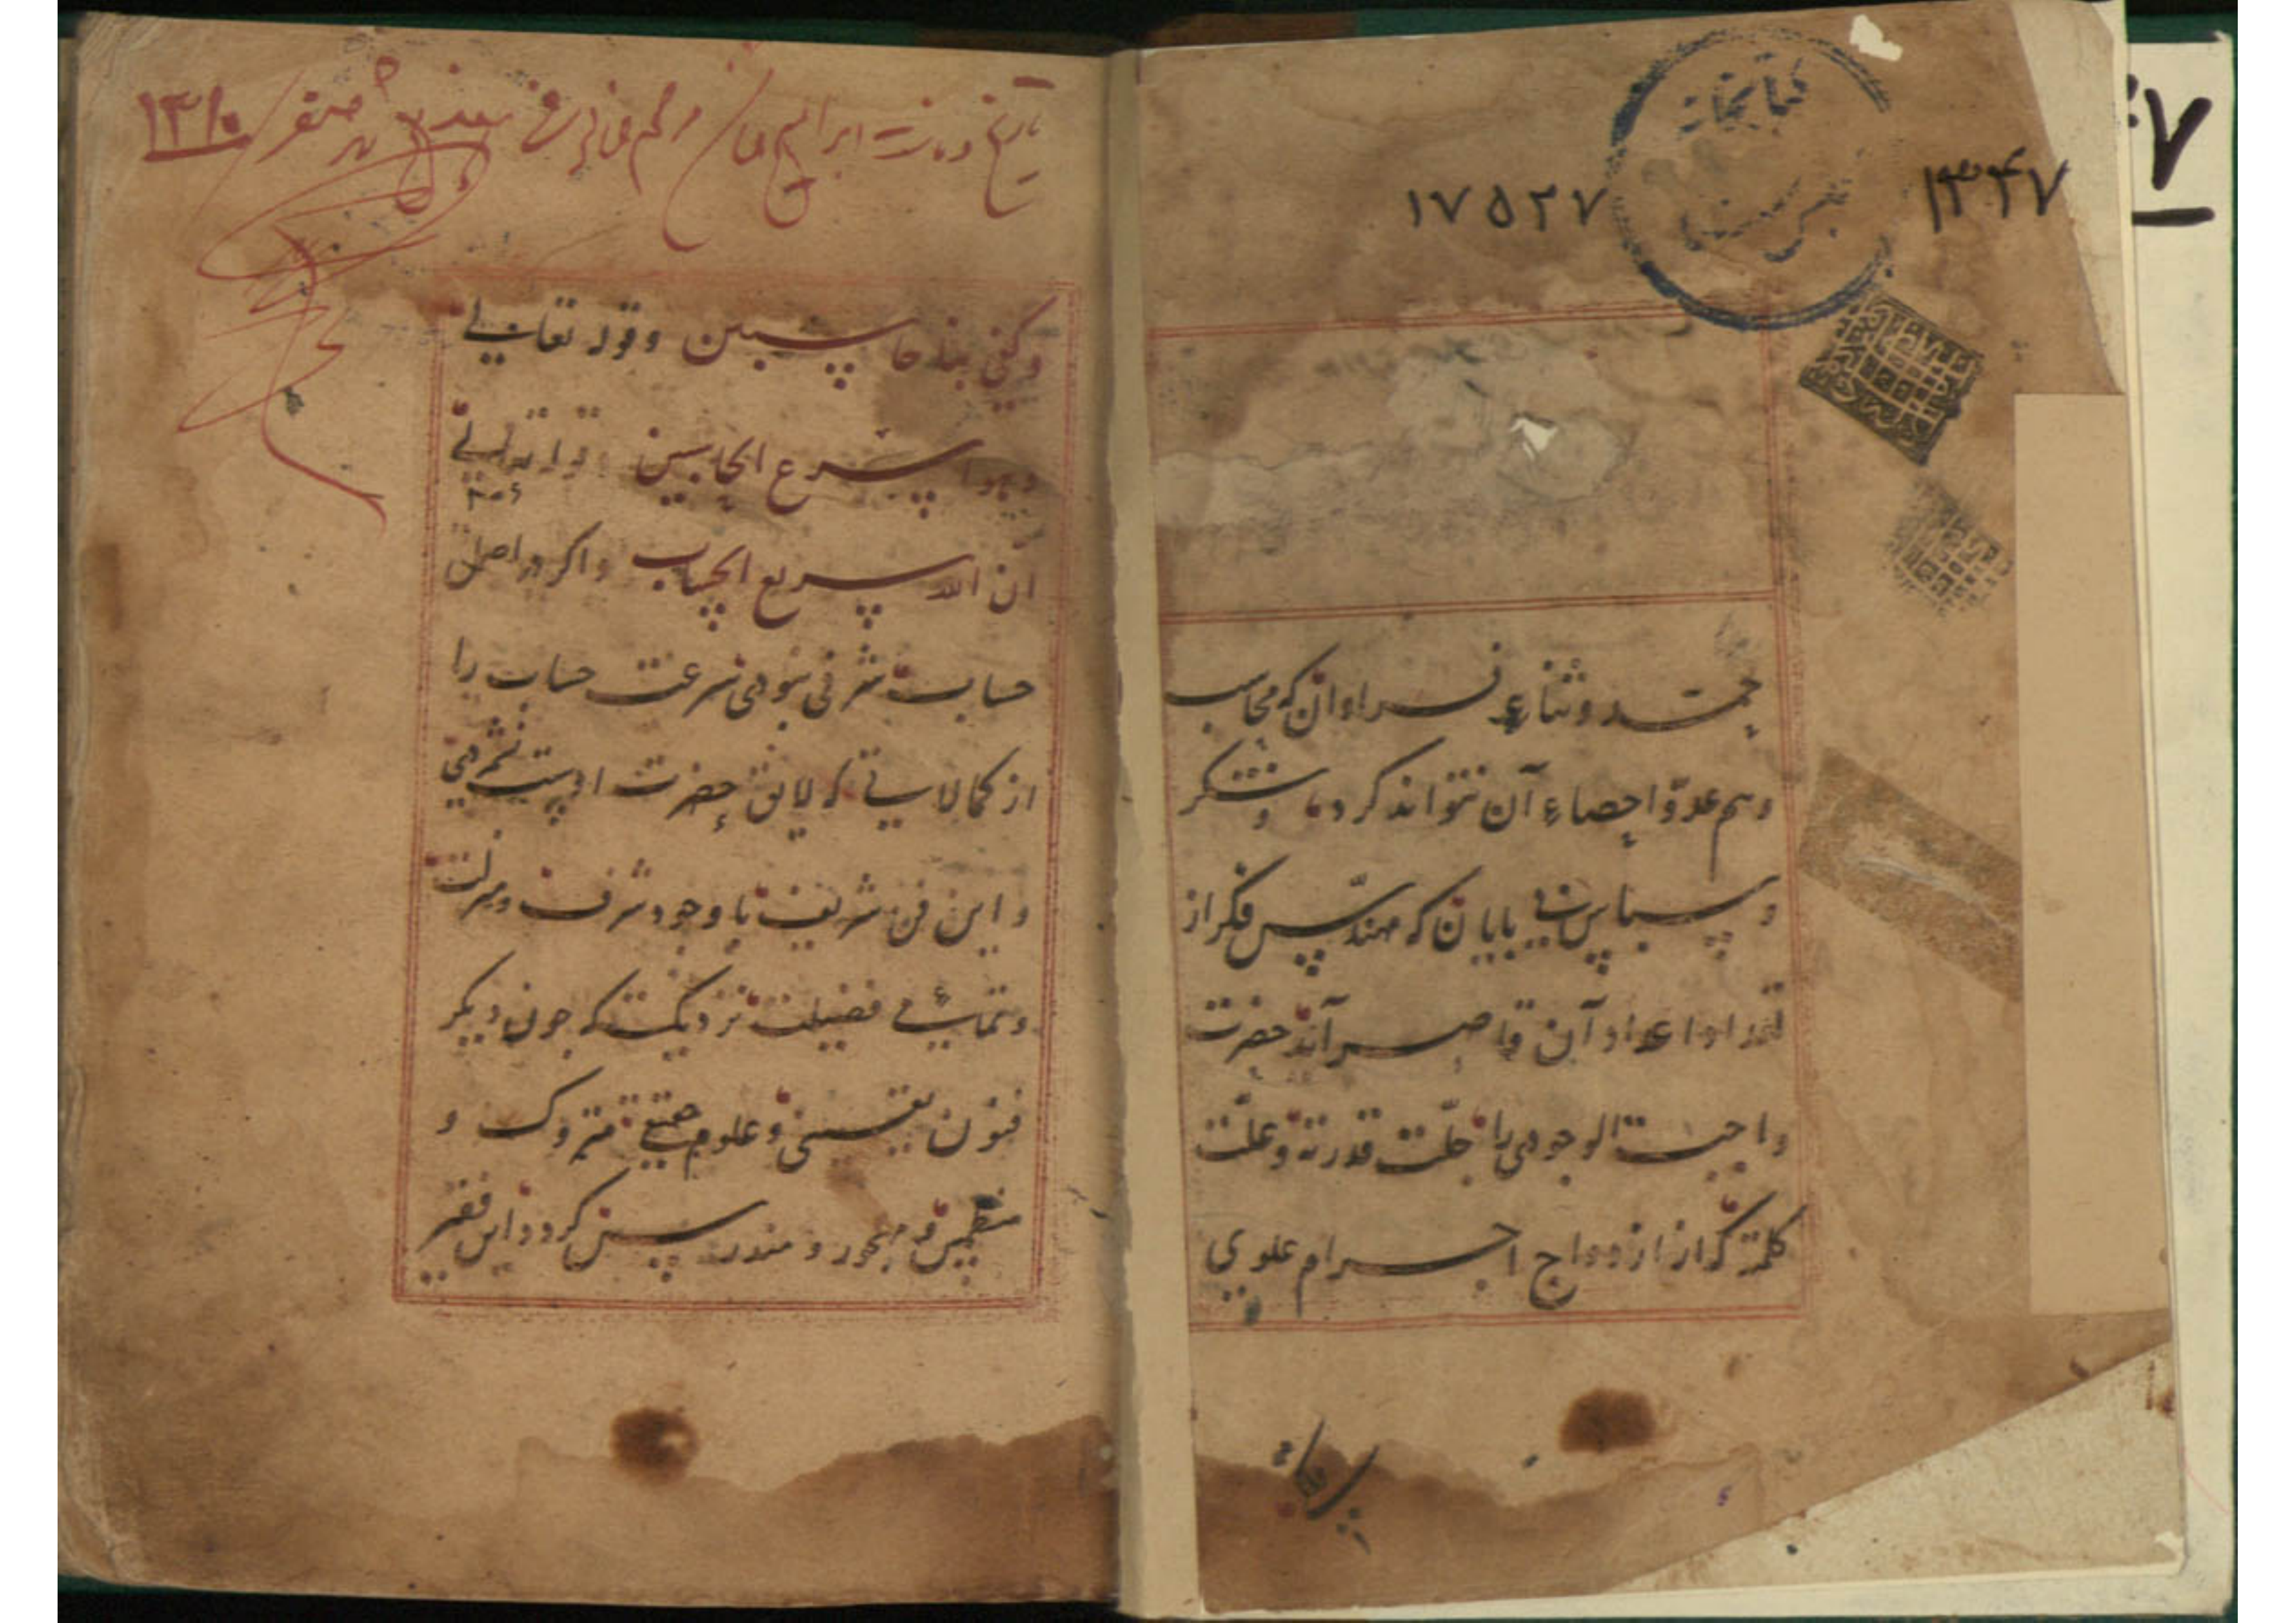 کتابخانه
۱۳۴۷
۱۷۵۲۷
حمد و ثناء فراوان که محاسب
وهم عدّ و احصاء آن نتواند کرد و شکر
و سپاس بی پایان که مهندس فکر از
تعداد اعداد آن قاصر آید حضرت
واجب الوجودی را جلّت قدرته و علت
کلمته که از ازدواج اجرام علوی
تاریخ وفات ابراهیم خان صفر ۱۳۱۰
وکفی بنا حاسبین و قوله تعالی
وهو اسرع الحاسبین قوله تعالی
ان الله سریع الحساب و اگر در اصل
حساب شرفی نبودی سرعت حساب را
از کمالاتی که لایق حضرت اوست نشمردی
و این فن شریف با وجود شرف و منزلت
و تمامی فضیلت نزدیکست که چون دیگر
فنون یقینی و علوم حقیقی متروک و
منطمس و مهجور و مندرس گردد این فقیر